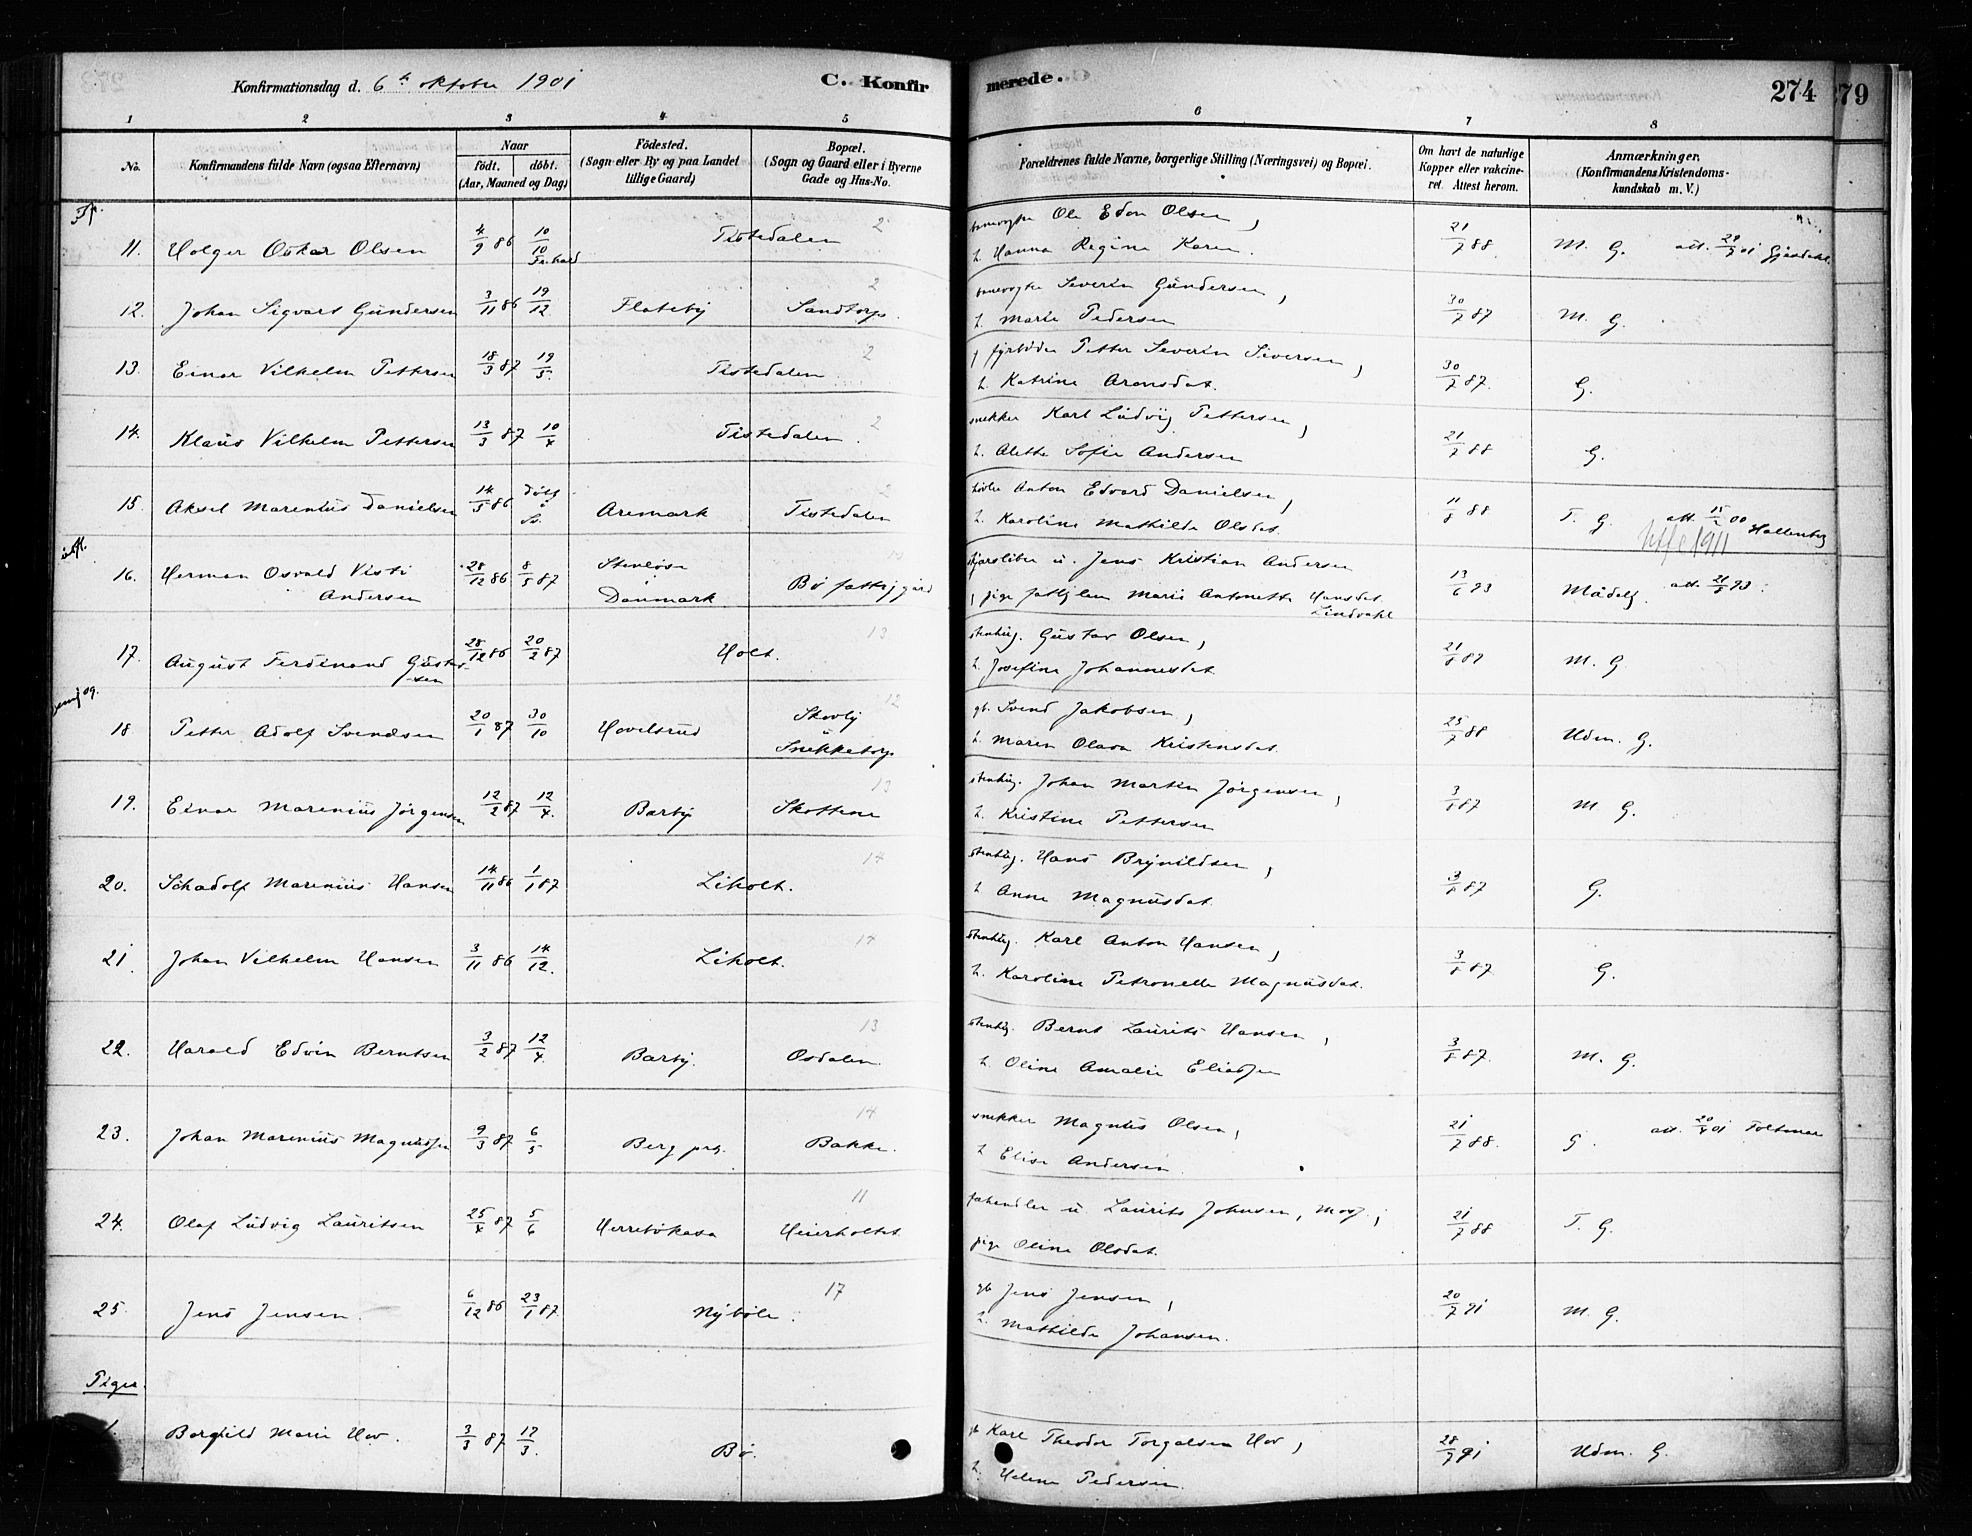 Konfirmationsdag d. 6te oktober 1901 C. Konfirmerede. 274 279
1 2 3 4 5 6 7 8
No. Konfirmandens fulde Navn (ogsaa Efternavn) Naar født. døbt. (Aar, Maaned og Dag) Fødested. (Sogn eller By og paa Landet tillige Gaard) Bopæl. (Sogn og Gaard eller i Byerne Gade og Hus-No. Forældrenes fulde Navne, borgerlige Stilling (Næringsvei) og Bopæl. Om havt de naturlige Kopper eller vakcineret. Attest herom. Anmærkninger. (Konfirmandens Kristendomskundskab m. V.)
11. Holger Oskar Olsen 4/9 86 10/10 Fr.hald Tistedalen 2 Ole Edon Olsen, h. Hanna Regine Karen. 21/7 88 M. G. att. 29/7 01
12. Johan Sigvart Gundersen 3/11 86 19/12 Flateby Sandtorp. 2 Severin Gundersen, h. Marie Pedersen 30/7 87 M. G.
13. Einar Vilhelm Pettersen 18/3 87 19/5. Tistedalen 2 fyrbøder Petter Severin Siversen, h. Katrine Aronsdat. 30/7 87. G.
14. Klaus Vilhelm Pettersen 13/3 87 10/4 Tistedalen. 2 snekker Karl Ludvig Pettersen, h. Alette Sofie Andersen 21/7 88 G.
15. Aksel Marentius Danielsen 14/5 86 Aremark Tistedalen 2 Anton Edvard Danielsen, h. Karoline Mathilde Olsdat. 11/8 88 T. G. att. 15/2 00 Hallenby
1911
16. Herman Osvald Visti Andersen 28/12 86 8/5 87 Stenløse Danmark Bø fattiggård Jens Kristian Andersen pige Marie Antonette Hansdat. Lindvahl 13/6 93 Mådelg. att. 21/6 93.
17. August Ferdinand Gustavsen 28/12 86 20/2 87 Holt. 13 stenhug. Gustav Olsen, h. Josefine Johannesdat. 21/8 87 M. G.
18 Petter Adolf Svendsen 20/1 87 30/10 Hovelsrud Skovly Snekketorp. 12 gb. Svend Jakobsen, h. Maren Olava Kristensdat. 25/7 88 Udm. G.
19. Einar Marenius Jørgensen 12/2 87 12/4. Barby Skottene 13 stenhug. Johan Martin Jørgensen, h. Kristine Pettersen 3/8 87 M. G.
20. Schadolf Marenius Hansen 14/11 86 1/1 87 Liholt. 14 stenhug. Hans Brynildsen, h Anne Magnusdat. 3/8 87 G.
21. Johan Vilhelm Hansen 3/11 86 14/12. Liholt. 14 stenhug. Karl Anton Hansen, h. Karoline Petronelle Magnusdat. 3/8 87. G.
22. Harald Edvin Berntsen 3/2 87 12/4. Barby. Osdalen. 13 stenhug. Bernt Laurits Hansen, h Oline Amalie Eliassen 3/8 87. M. G.
23. Johan Marenius Magnussen 9/3 87 6/5 Berg prg. Bakke. 14 snekker Magnus Olsen, h Elise Andersen. 21/7 88. G. att. 20/4 01
24. Olaf Ludvig Lauritsen 25/4 87 5/6 Herrebøkasa Heierholtet 11 fæhandler u. Laurits Johnsen, Moss; pige Oline Olsdat. 21/7 88 T. G.
25. Jens Jensen. 6/12 86 23/1 87. Nybøle. 17 gb Jens Jensen, h. Mathilde Johansen. 20/7 91 M. G.
Piger.
1. Borghild Marie Hov. 3/3 87 17/3. Bø. gb Karl Theodor Torgalsen Hov, h. Helene Pedersen. 28/7 91 Udm. G.